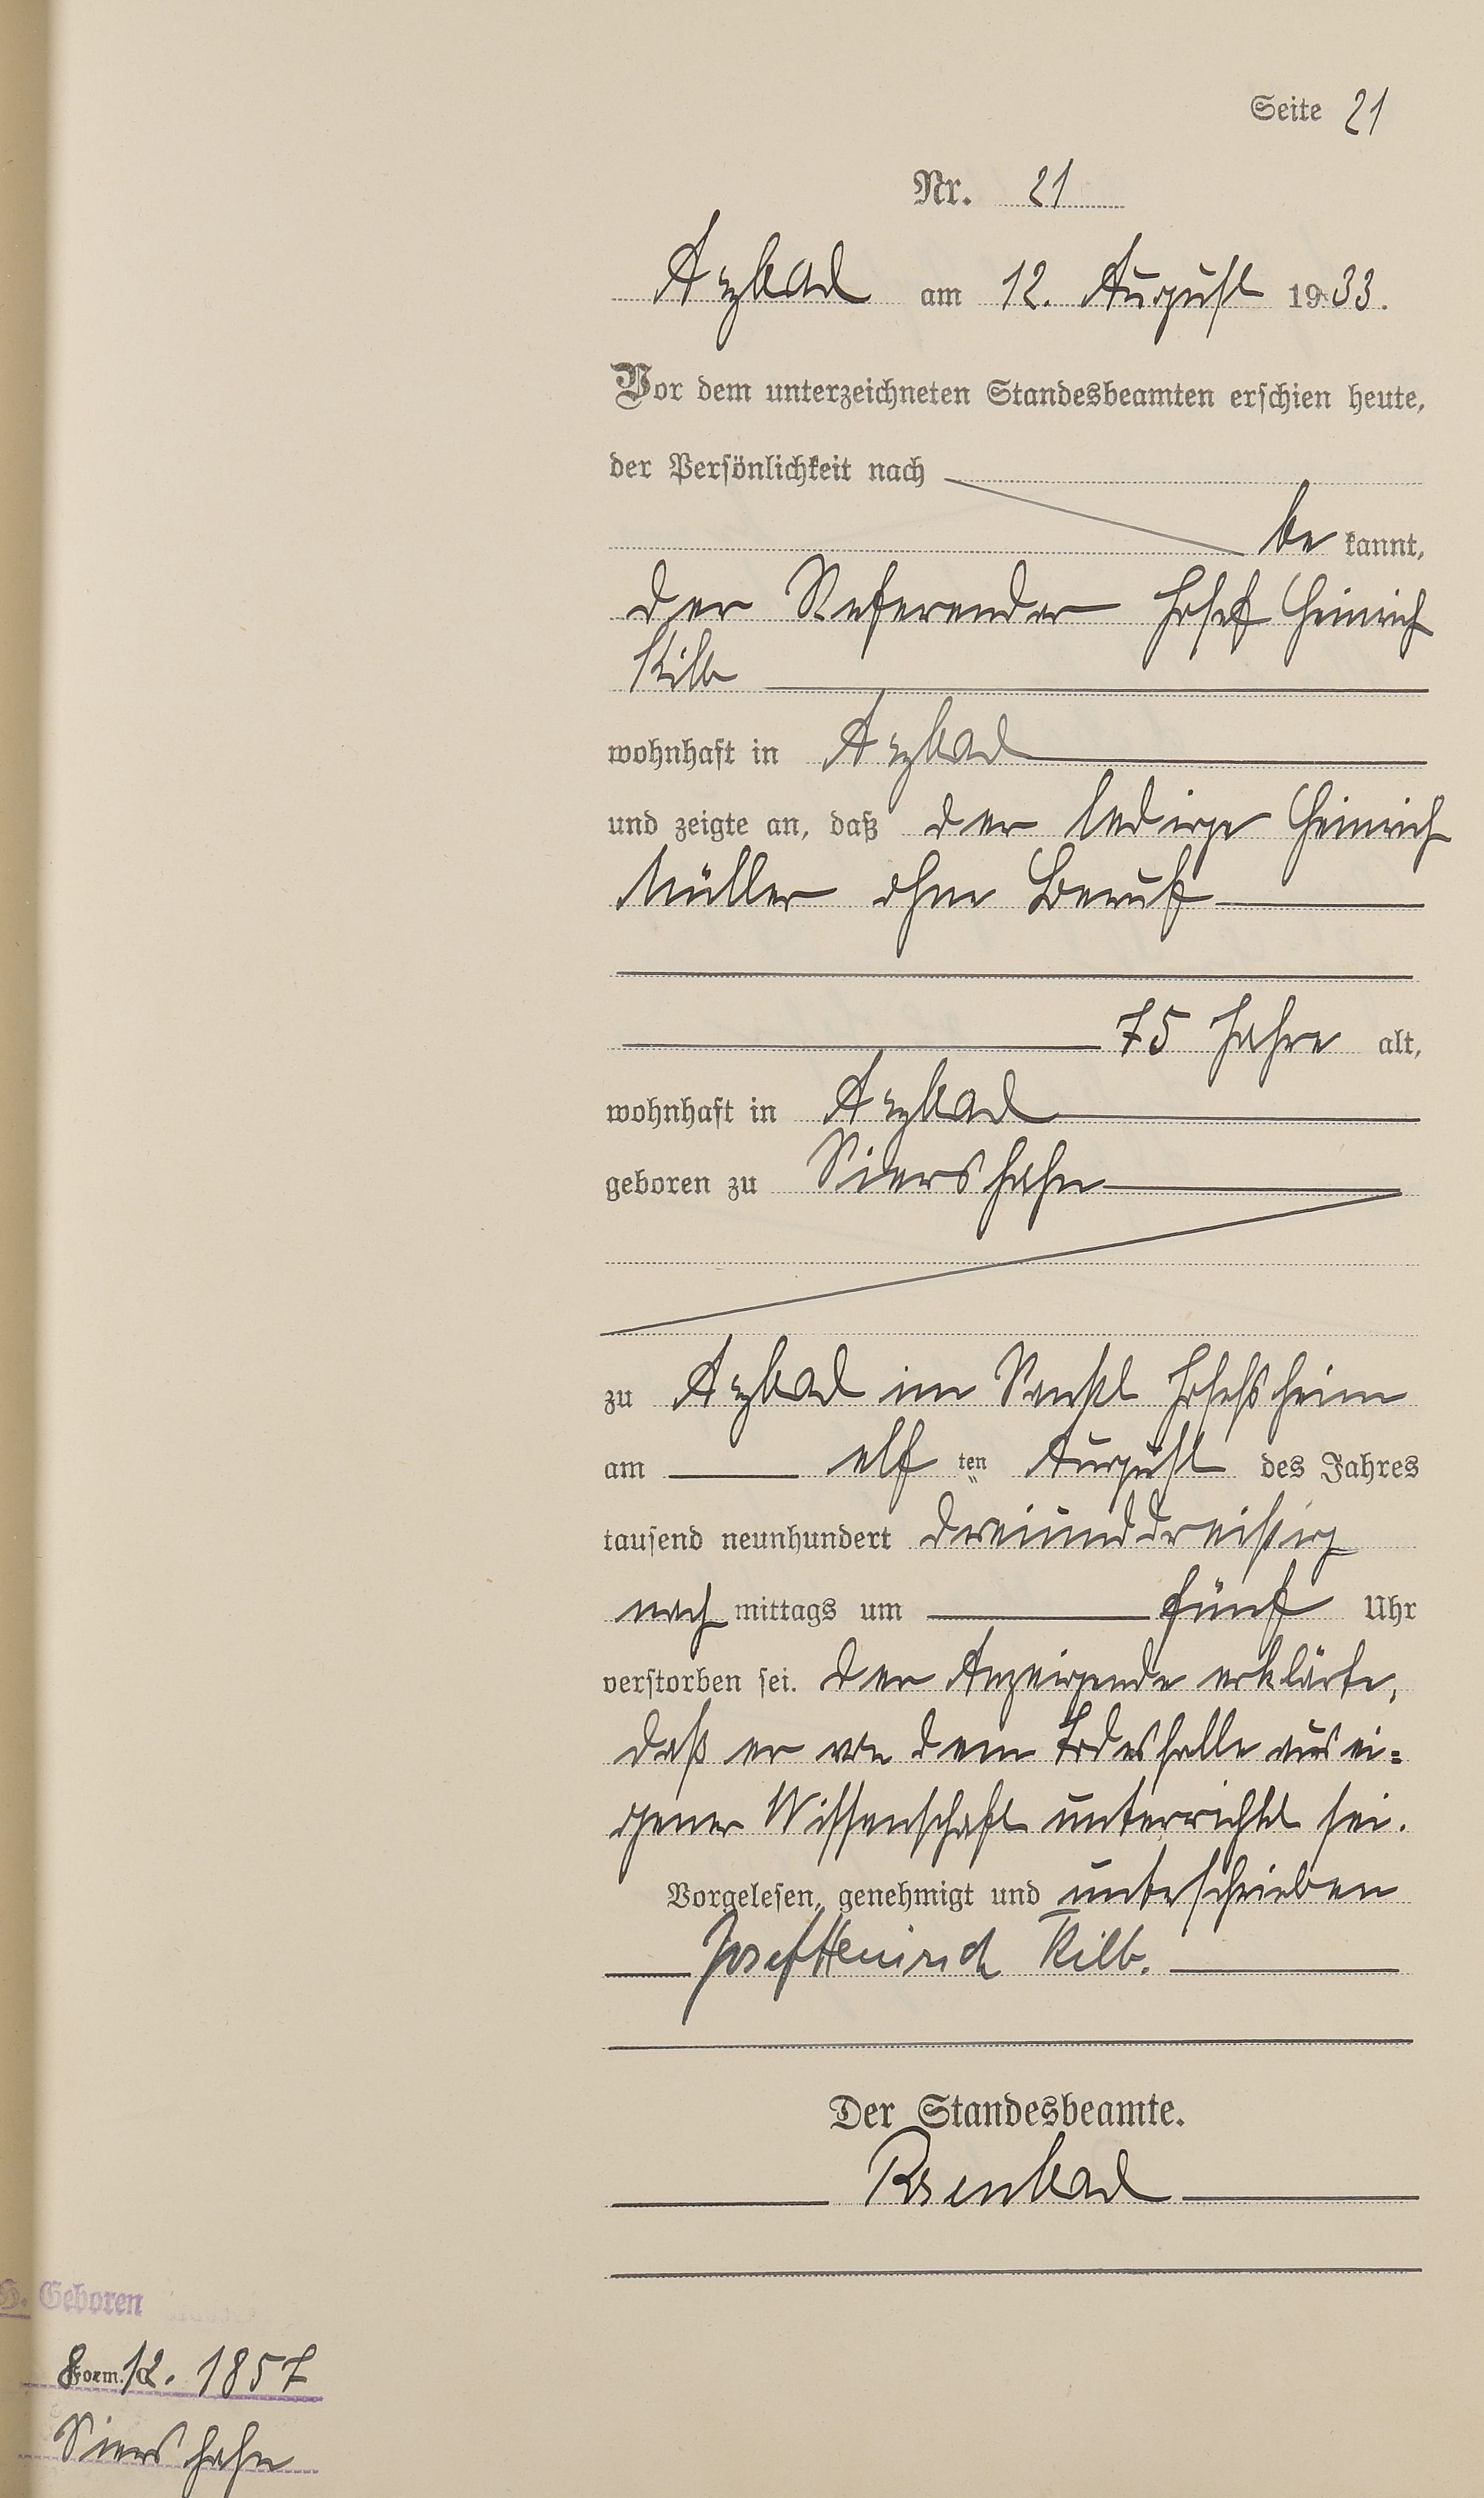 Seite 21
Nr. 21
Arzbach am 12. August 1933.
Vor dem unterzeichneten Standesbeamten erschien heute,
der Persönlichkeit nach
be kannt,
der Referendar Josef Heinrich
Kilb
wohnhaft in Arzbach
und zeigte an, daß der ledige Heinrich
Müller ohne Beruf
75 Jahre alt,
wohnhaft in Arzbach
geboren zu Siershahn
zu Arzbach im Sankt Josefsheim
am elf ten August des Jahres
tausend neunhundert dreiunddreißig
nach mittags um fünf Uhr
verstorben sei. Der Anzeigende erklärte,
daß er von dem Todesfalle aus ei=
gener Wissenschaft unterrichtet sei.
Vorgelesen, genehmigt und unterschrieben
Josef Heinrich Kilb.
Der Standesbeamte.
H. Geboren
8. 12. 1857
Siershahn